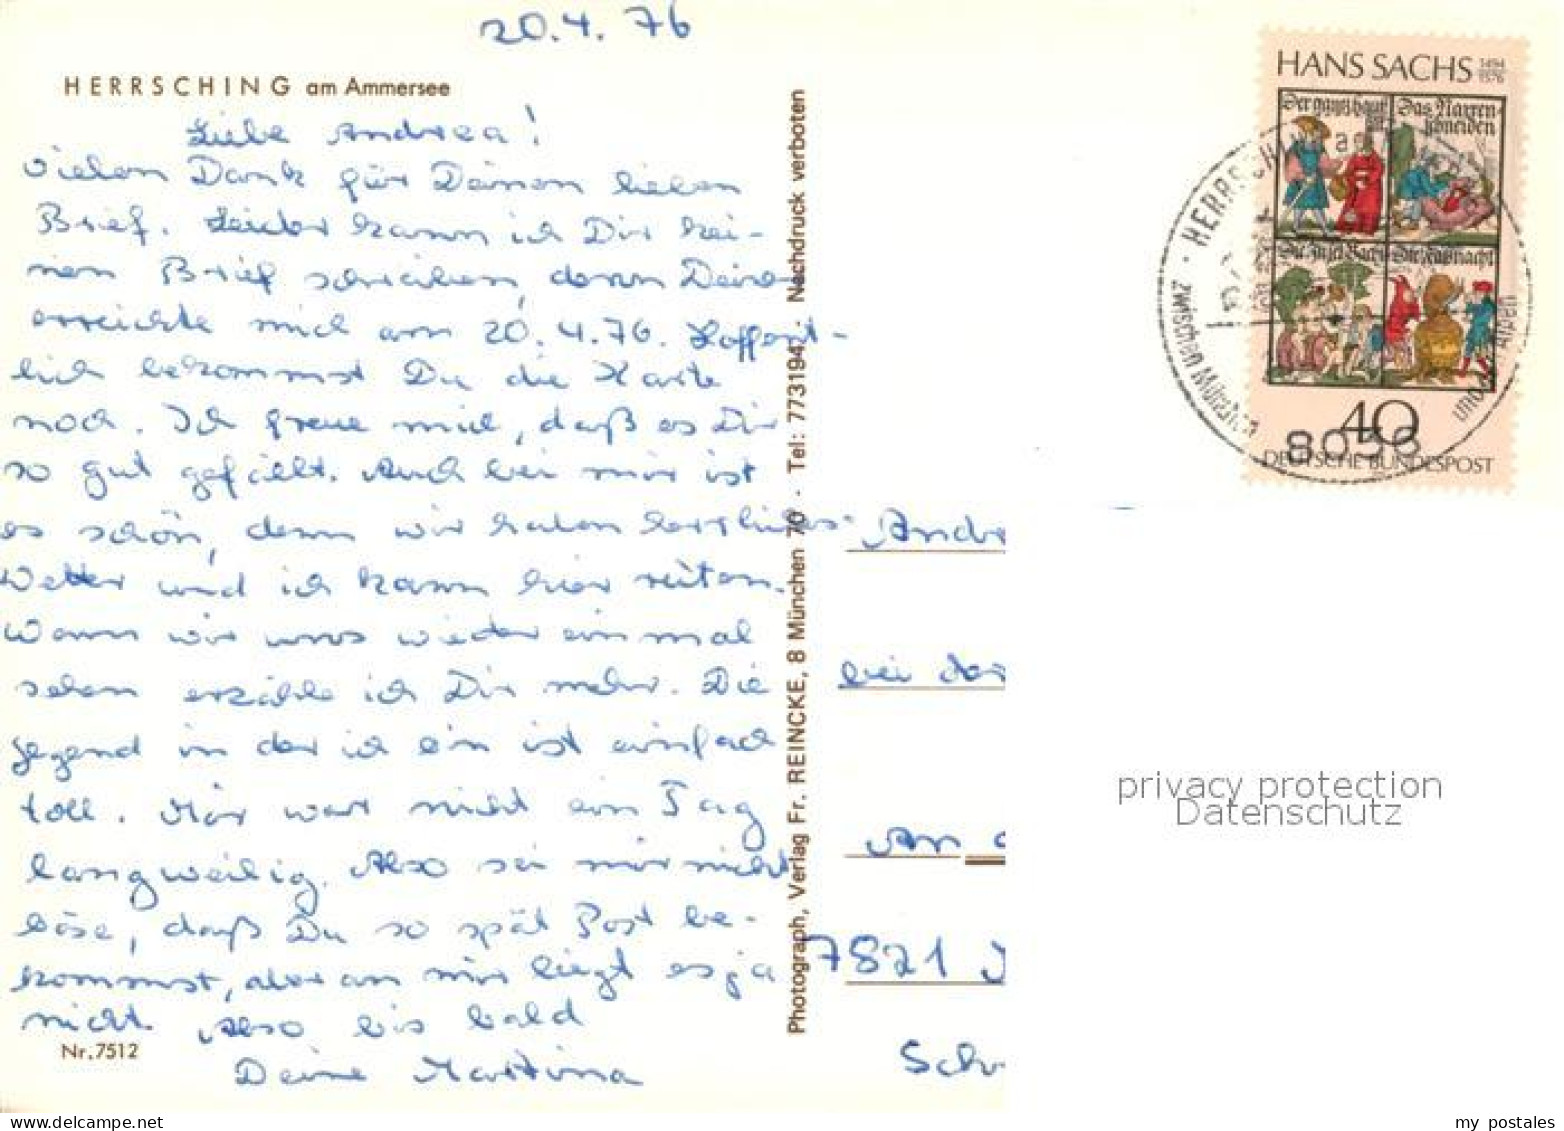 20.4.76
HERRSCHING am Ammersee
Liebe Andrea!
Vielen Dank für Deinen lieben
Brief. Leider kann ich Dir kei-
nen Brief schreiben, denn Deiner
erreichte mich am 20.4.76. Hoffent-
lich bekommst Du die Karte
noch. Ich freue mich, daß es Dir
so gut gefällt. Auch bei mir ist
es schön, denn wir haben herrliches
Wetter und ich kann hier reiten.
Wenn wir uns wieder einmal
sehen erzähle ich Dir mehr. Die
Gegend in der ich bin ist einfach
toll. Mir war nicht ein Tag
langweilig. Also sei mir nicht
böse, daß Du so spät Post be-
kommst, aber an mir liegt es ja
nicht. Also bis bald
Deine Martina
Nr. 7512
Photograph, Verlag Fr. REINCKE, 8 München 70 · Tel: 773194 · Nachdruck verboten
HANS SACHS 1494
1576
Der gantz hauß
Das Narren
schneiden
Die Faßnacht
40
DEUTSCHE BUNDESPOST
HERRSCHING a.
zwischen München
und Alpen
Andr
bei der
An
7821
Sch
privacy protection
Datenschutz
my postales
www.delcampe.net